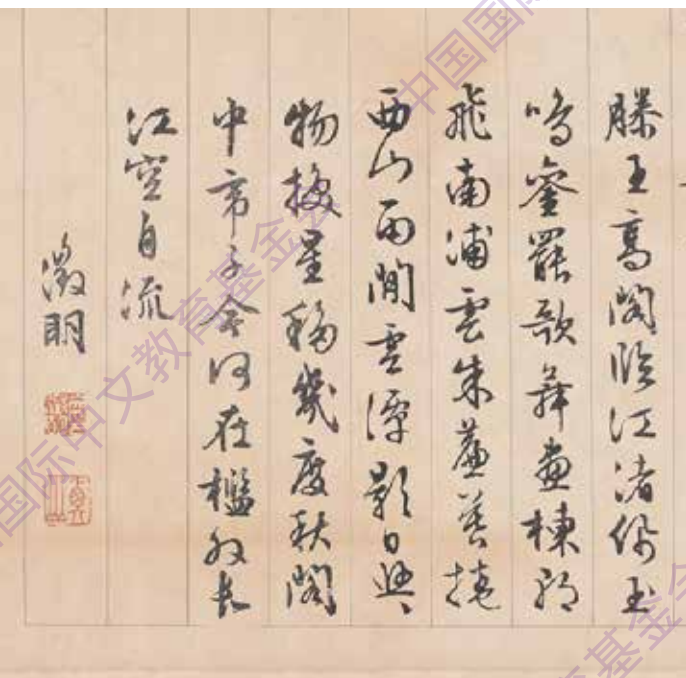 滕王高閣臨江渚佩玉
鳴鑾罷歌舞畫棟朝
飛南浦雲朱簾暮捲
西山雨閒雲潭影日悠〻
物換星移幾度秋閣
中帝子今何在檻外長
江空自流
徵明
中国国际中文教育基金会